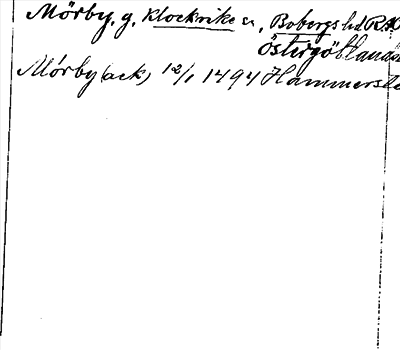 Mörby, g, Klockrike sn, Bobergs hd
Östergötland
Mörby (ack) 12/1 1494 Hammersta